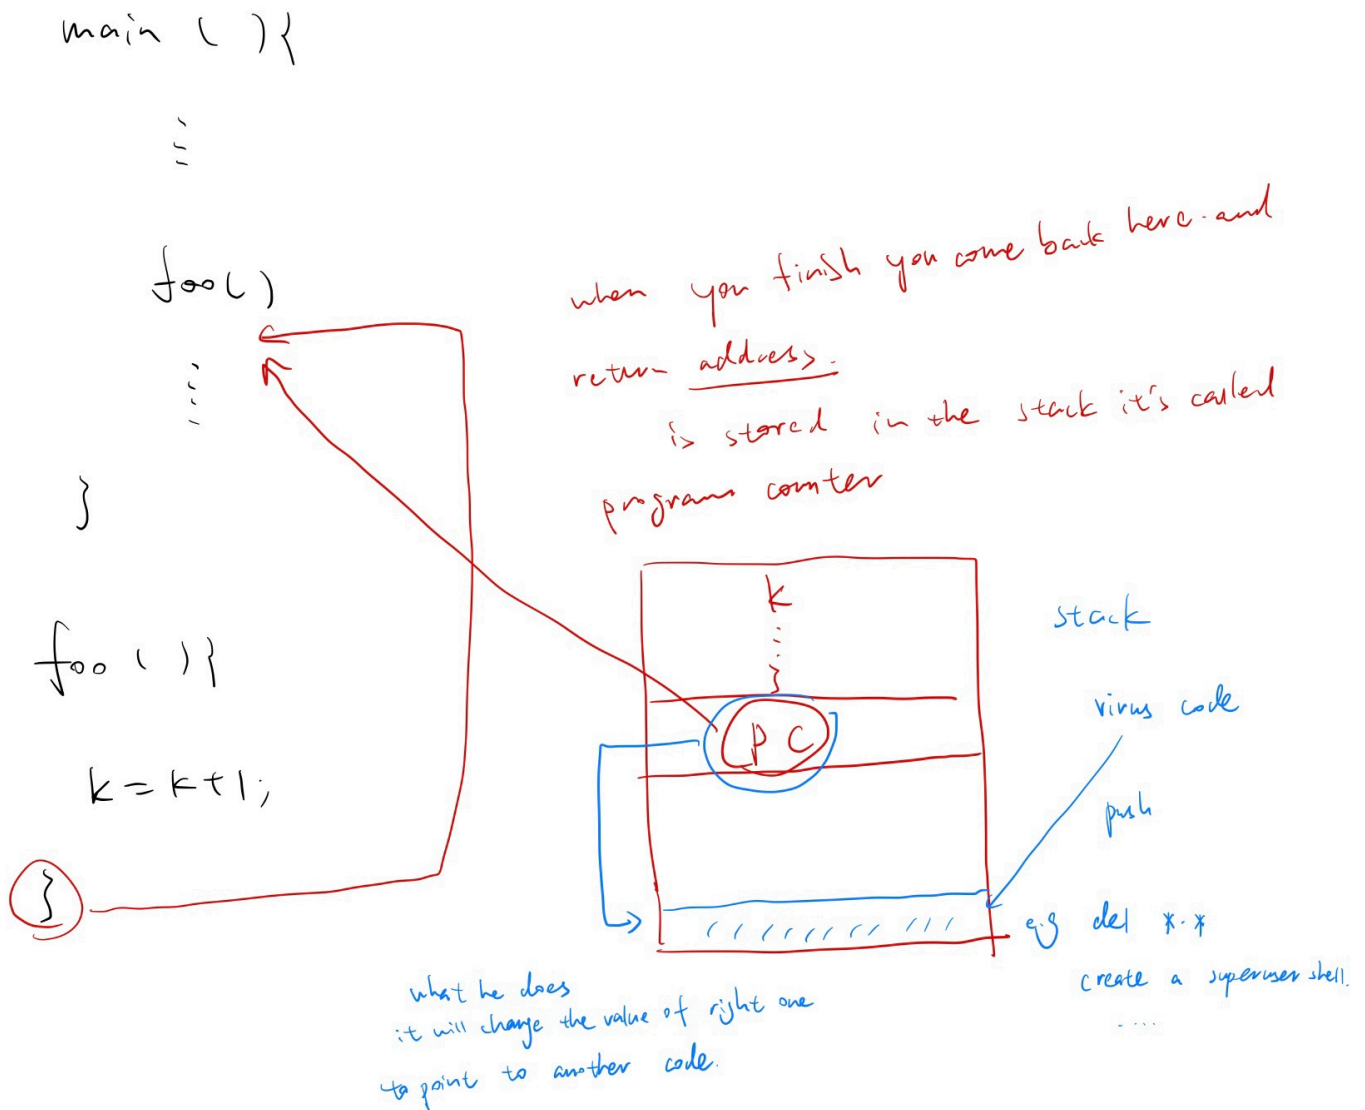 main ( ){
foo( )
}
foo ( ){
k = k+1;
}
when you finish you come back here and
return address.
is stored in the stack it's called
program counter
k
}
PC
stack
virus code
push
e.g del *.*
create a superuser shell.
....
what he does
it will change the value of right one
to point to another code.